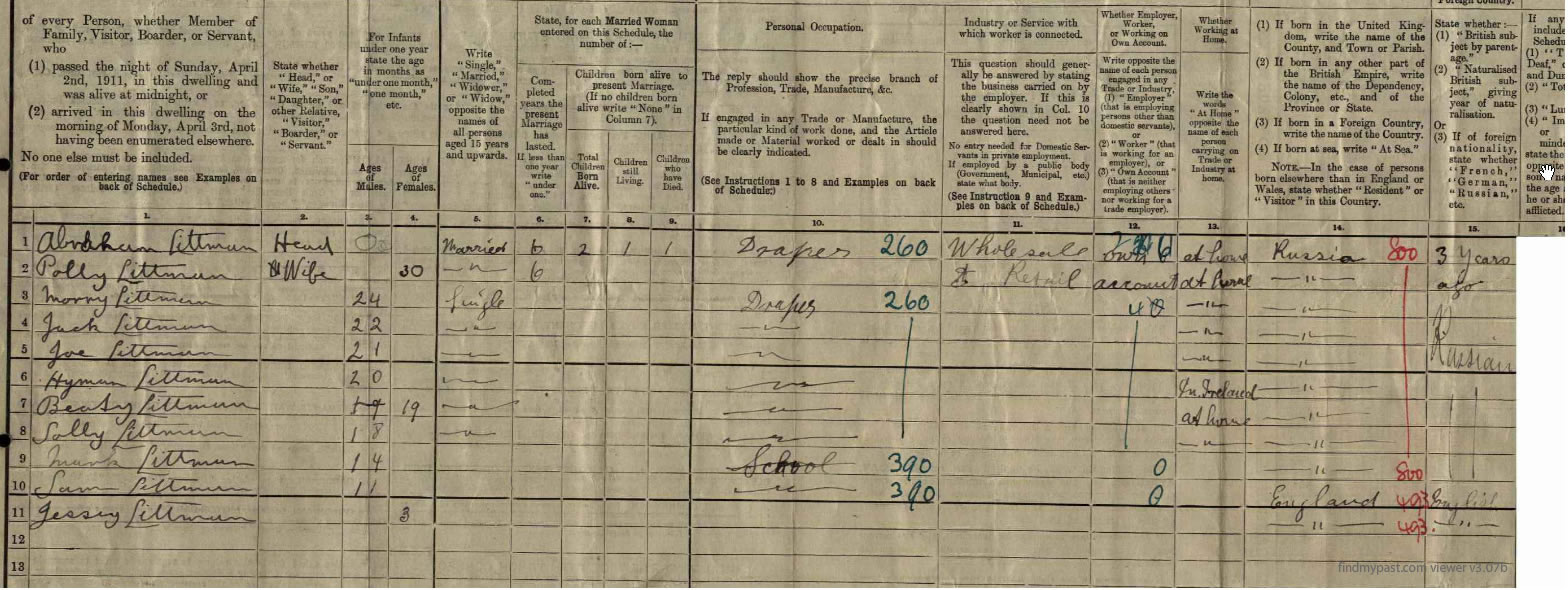 of every Person, whether Member of
Family, Visitor, Boarder, or Servant,
who
(1) passed the night of Sunday, April
2nd, 1911, in this dwelling and
was alive at midnight, or
(2) arrived in this dwelling on the
morning of Monday, April 3rd, not
having been enumerated elsewhere.
No one else must be included.
(For order of entering names see Examples on
back of Schedule.)
State whether
"Head," or
"Wife," "Son,"
"Daughter," or
other Relative,
"Visitor,"
"Boarder," or
"Servant."
For Infants
under one year
state the age
in months as
"under one month,"
"one month,"
etc.
Ages
of
Males.
Ages
of
Females.
Write
"Single,"
"Married,"
"Widower,"
or "Widow,"
opposite the
names of
all persons
aged 15 years
and upwards.
State, for each Married Woman
entered on this Schedule, the
number of:—
Com-
pleted
years the
present
Marriage
has
lasted.
If less than
one year
write
"under
one."
Children born alive to
present Marriage.
(If no children born
alive write "None" in
Column 7).
Total
Children
Born
Alive.
Children
still
Living.
Children
who
have
Died.
Personal Occupation.
The reply should show the precise branch of
Profession, Trade, Manufacture, &c.
If engaged in any Trade or Manufacture, the
particular kind of work done, and the Article
made or Material worked or dealt in should
be clearly indicated.
(See Instructions 1 to 8 and Examples on back
of Schedule.)
Industry or Service with
which worker is connected.
This question should gener-
ally be answered by stating
the business carried on by
the employer. If this is
clearly shown in Col. 10
the question need not be
answered here.
No entry needed for Domestic Ser-
vants in private employment.
If employed by a public body
(Government, Municipal, etc.)
state what body.
(See Instruction 9 and Exam-
ples on back of Schedule.)
Whether Employer,
Worker,
or Working on
Own Account.
Write opposite the
name of each person
engaged in any
Trade or Industry,
(1) "Employer"
(that is employing
persons other than
domestic servants),
or
(2) "Worker" (that
is working for an
employer), or
(3) "Own Account"
(that is neither
employing others
nor working for a
trade employer).
Whether
Working at
Home.
Write the
words
"At Home"
opposite the
name of each
person
carrying on
Trade or
Industry at
home.
Foreign Country.
(1) If born in the United King-
dom, write the name of the
County, and Town or Parish.
(2) If born in any other part of
the British Empire, write
the name of the Dependency,
Colony, etc., and of the
Province or State.
(3) If born in a Foreign Country,
write the name of the Country.
(4) If born at sea, write "At Sea."
NOTE.—In the case of persons
born elsewhere than in England or
Wales, state whether "Resident" or
"Visitor" in this Country.
State whether :—
(1) "British sub-
ject by parent-
age."
(2) "Naturalised
British sub-
ject," giving
year of natu-
ralisation.
Or
(3) If of foreign
nationality,
state whether
"French,"
"German,"
"Russian,"
etc.
1. 2. 3. 4. 5. 6. 7. 8. 9. 10. 11. 12. 13. 14. 15.
1 Abraham Littman Head Married 6 2 1 1 Draper 260 Wholesale own at home Russia 800 3 Years
2 Polly Littman Wife 30 —"— 6 & Retail account at home —"— ago
3 Morry Littman 24 Single Draper 260 —"— —"—
4 Jack Littman 22 —"— —"— —"— —"—
5 Joe Littman 21 —"— —"— —"— —"— Russian
6 Hyman Littman 20 —"— —"— In Ireland —"—
7 Beaty Littman 19 —"— —"— at home —"—
8 Solly Littman 18 —"— —"— —"— —"—
9 Mark Littman 14 School 390 0 —"— 800
10 Sam Littman 11 —"— 390 0 England 493 English
11 Jessey Littman 3 —"— 493. —"—
12
13
findmypast.com viewer v3.07b